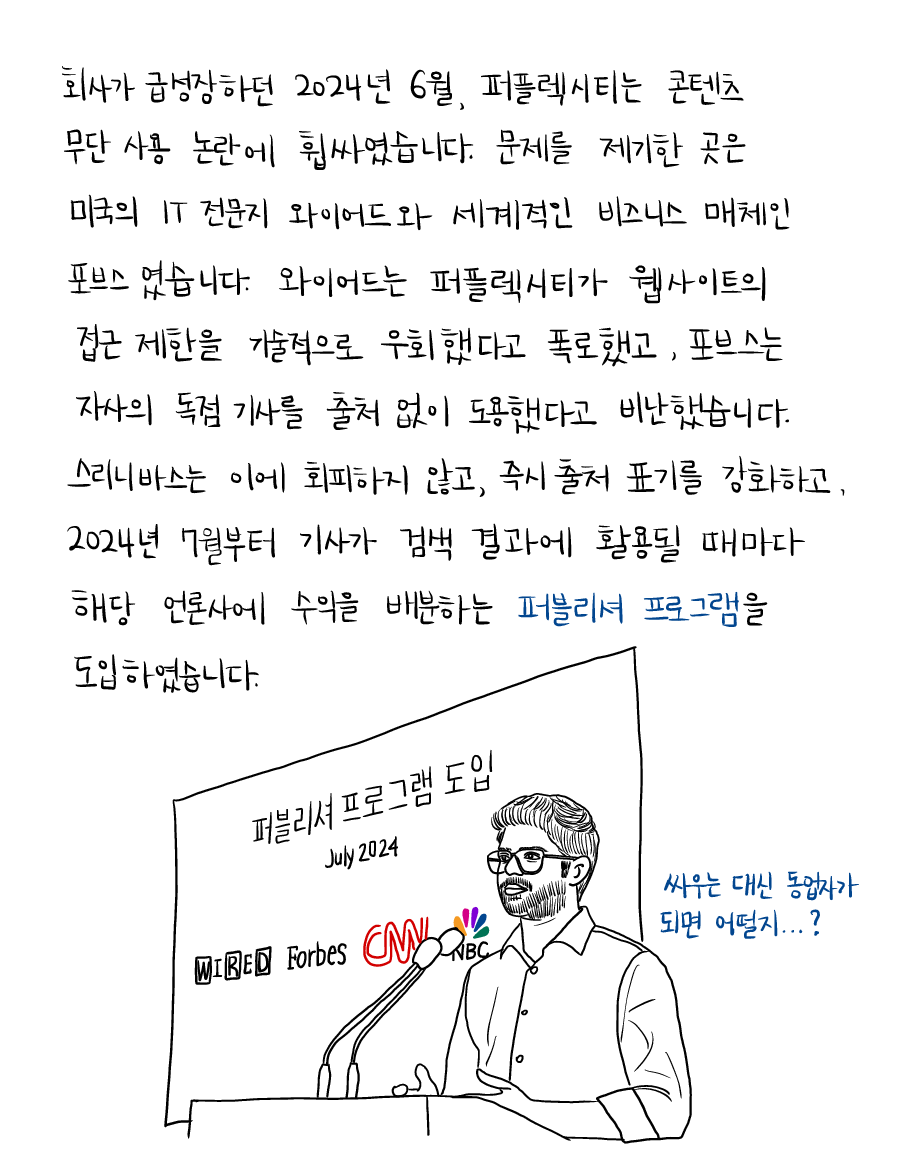 회사가 급성장하던 2024년 6월, 퍼플렉시티는 콘텐츠
무단 사용 논란에 휩싸였습니다. 문제를 제기한 곳은
미국의 IT 전문지 와이어드와 세계적인 비즈니스 매체인
포브스 였습니다. 와이어드는 퍼플렉시티가 웹사이트의
접근 제한을 기술적으로 우회했다고 폭로했고, 포브스는
자사의 독점 기사를 출처 없이 도용했다고 비난했습니다.
스리니바스는 이에 회피하지 않고, 즉시 출처 표기를 강화하고,
2024년 7월부터 기사가 검색 결과에 활용될 때마다
해당 언론사에 수익을 배분하는 퍼블리셔 프로그램을
도입하였습니다.
퍼블리셔 프로그램 도입
July 2024
WIRED Forbes CNN NBC
싸우는 대신 동업자가
되면 어떨지...?